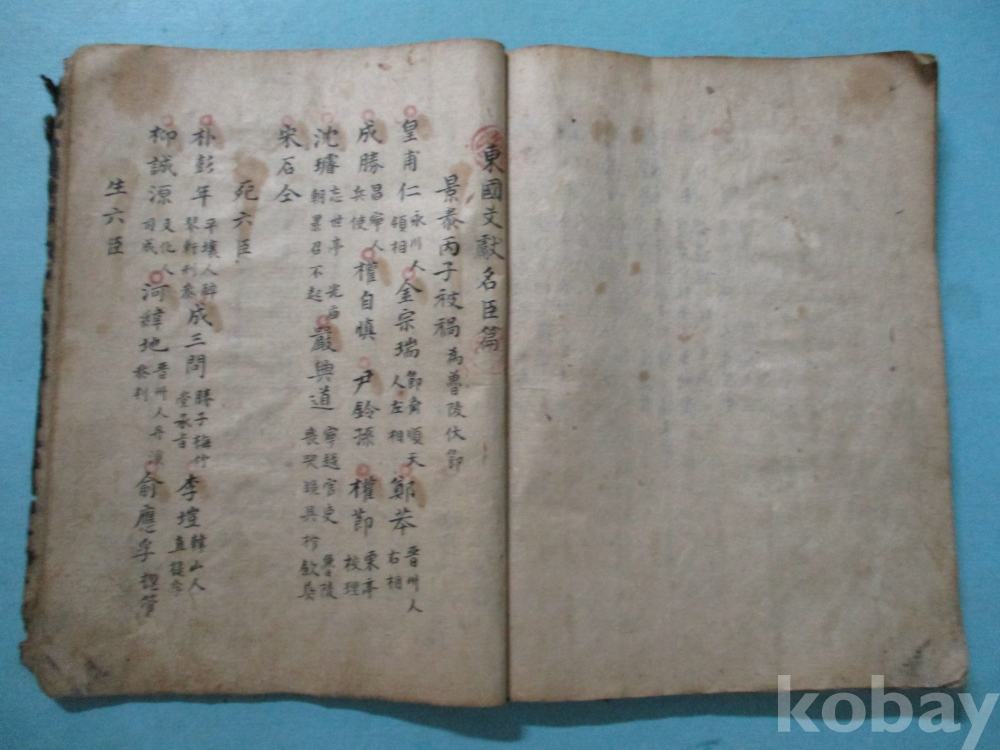 東國文獻名臣篇
景泰丙子被禍 為魯陵伏節
皇甫仁 永川人 領相 金宗瑞 節斎順天人左相 鄭苯 晋州人 右相
成勝 昌寧人 兵使 權自愼 尹鈴孫 權節 栗亭 校理
沈璿 忘世亭 光庙朝累召不起 嚴興道 寧越官吏 魯陵喪哭 具 斂葬
宋石仝
死六臣
朴彭年 平壤人醉琴軒刑參 成三問 謹 子梅竹堂承旨 李塏 韓山人 直提学
柳誠源 文化人 司成 河緯地 晋州人丹 參判 俞應孚 摠管
生六臣
kobay